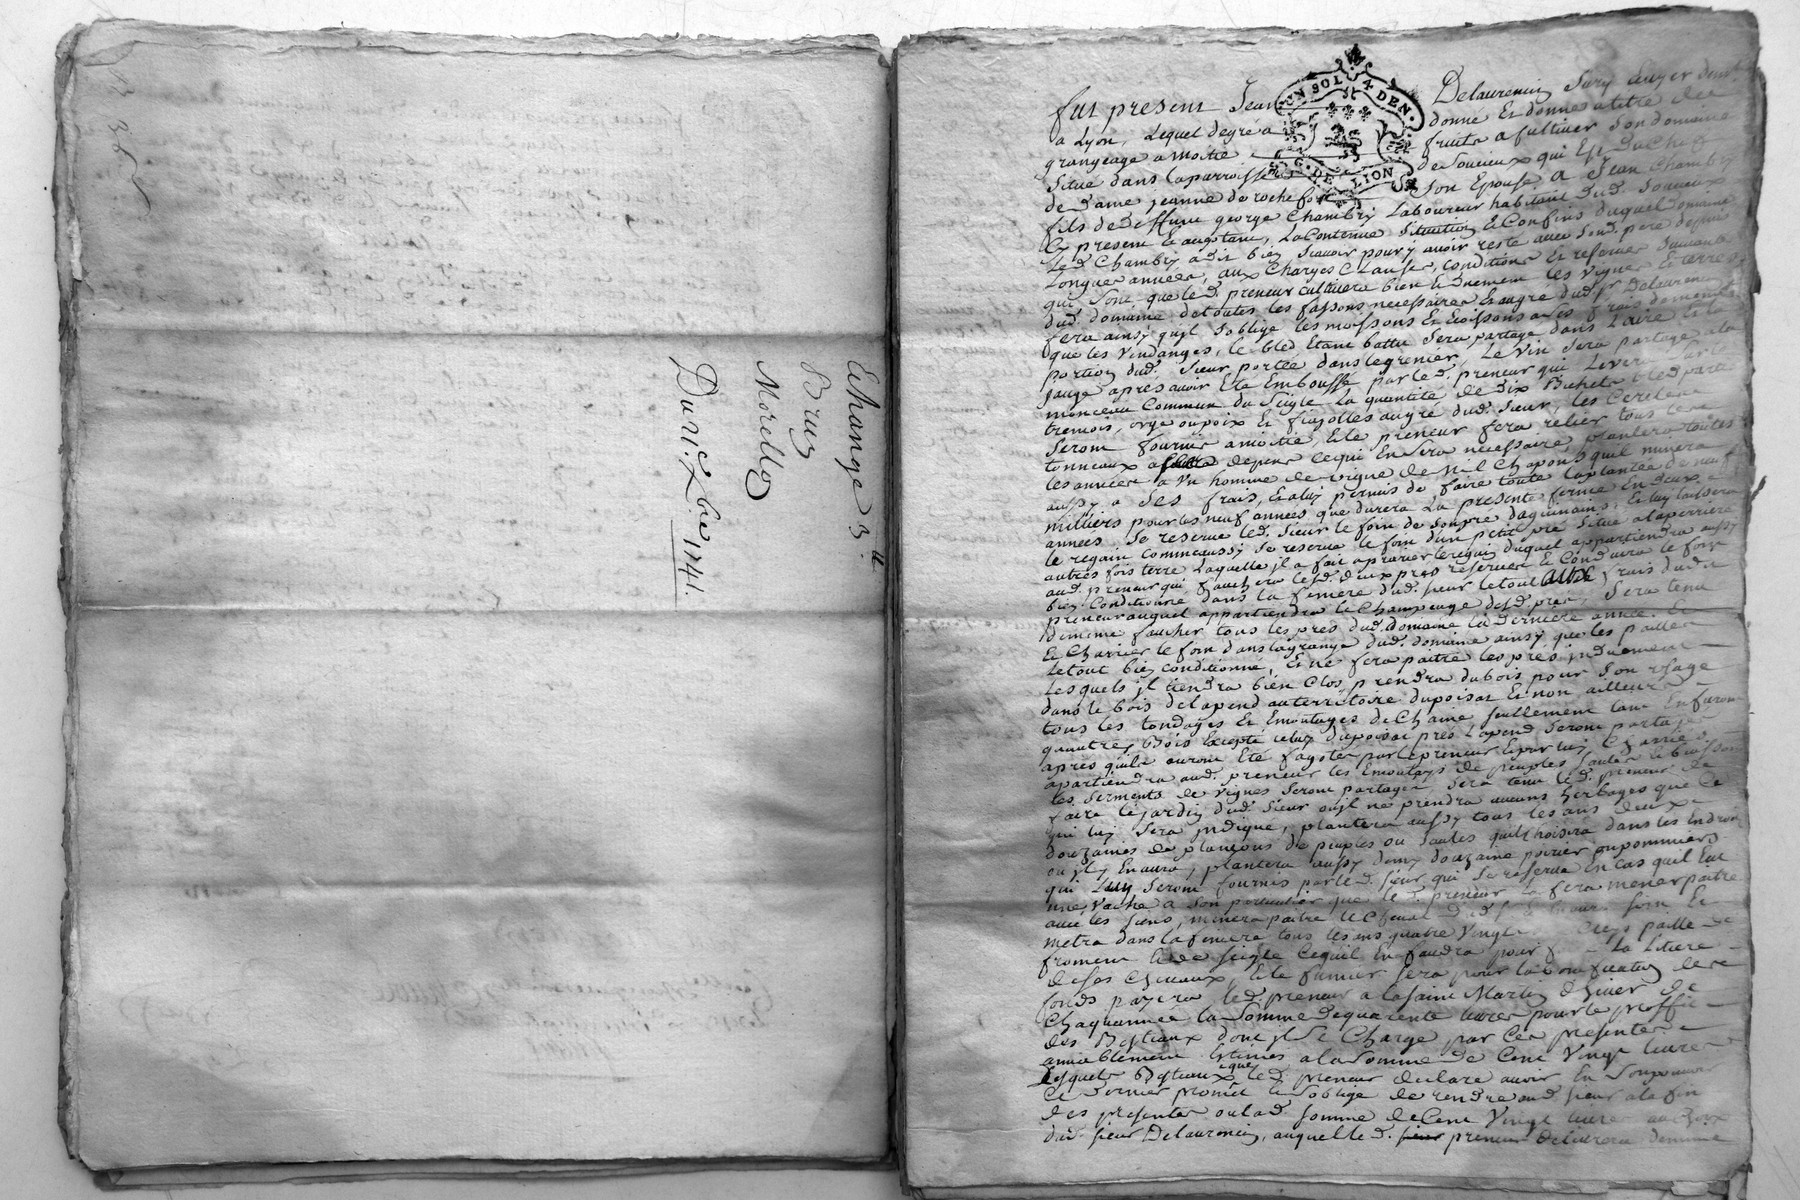 Echange 3.ll
Brun
Morello
Du 11.e Xbre 1741.
UN SOL 4 DEN.
G. DE LION
fut present Jean Delaurencin Jury Ecuyer demt
a Lyon, Lequel de gré a donné Et donne a titre de
grangeage a moitié fruits a Cultiver Son domaine
Situé dans la parroisse de Soucieux qui Est du Chef
de dame jeanne de rochefort Son Epouse, A Jean Chambry
fils de deffunt george Chambry Laboureur habitant dud. Soucieux
Cy present Et acceptant, La Contenue Situation Et Confins duquel domaine
Led. Chambry a dit bien Scavoir pour y avoir resté avec Sond. pere depuis
Longues années, aux Charges Clauses, conditions Et reserves Suivantes
qui Sont que led. preneur cultivera bien Et duement les vignes Et terres
dud. domaine de toutes les fassons necessaires Et au gré dud. sr Delaurencin
fera ainsy qu'jl S'oblige les moissons Et a Ses frais de meme
que les Vendanges, le bled Etant battu Sera partagé dans L'aire Et la
portion dud. Sieur portée dans le grenier, Le vin Sera partagé a la
jauge apres avoir Eté Emboussé par led. preneur qui Levera Sur le
monceau Commun du Seigle La quantité de dix Bichets bled
tremois, orge ou poix Et fiajolles au gré dud. Sieur, les Cercleaux
Seront fournis a moitié, Et le preneur fera relier tous les
tonneaux a depens Ce qui En Sera necessaire, plantera toutes
les années a Un homme de vigne de Mil Chapons qu'il minera
aussy a Ses frais, Et a luy permis de faire toute la plantée de neuf
milliers pour les neuf années que durera La presente ferme En deux
années, Se reserve led. Sieur le foin de Son pré daguinains, Et luy laissera
le regain comme aussy Se reserve le foin d'un petit pré Situé a la perriere
autres fois terre Laquelle jl a fait aprarier le regain duquel appartiendra aussy
aud. preneur qui fauchera lesd. deux prés reservés Et Conduira le foin
bien Conditionné dans la feniere dud. Sieur le tout aux frais dud.
preneur auquel appartiendra le Champeage desd. prés, Sera tenu
de meme faucher tous les prés dud. domaine la derniere année Et
Et Charrier le foin dans la grange dud. domaine ainsy que les pailles
le tout bien conditionné, Et ne fera paitre les prés jnduement
Lesquels jl tiendra bien Clos, prendra du bois pour Son usage
dans le bois de lapend au territoire dupoisat Et non ailleurs
tous les tondages Et Emontages de Chaine Seullement tant En
qu'autres Bois Excepté celuy dupoisat pres Lapend Seront partagés
apres qu'ils auront Eté fagotés par le preneur Et par luy Charriés,
apartiendra aud. preneur les Emontages de peuples Saules Et buissons
les Serments de vignes Seront partagés, Sera tenu led. preneur de
faire le jardin dud. Sieur ou jl ne prendra aucuns herbages que Ce
qui luy Sera jndiqué, plantera aussy tous les ans deux
douzaines de plançons de peuples ou Saules qu'il Choisira dans les Endroits
ou jl y En aura, plantera aussy demy douzaine poirier ou pommiers
qui luy Seront fournis par led. Sieur, qui Se reserve En cas qu'il Eut
une vache a Son particulier que led. preneur la fera mener paitre
avec les Siens, menera paitre le Cheval dud. foin Et
metra dans la feniere tous les ans quatre Vingts paille de
froment Et de Seigle Ce qu'il En faudra pour La Litiere
de Ses Chevaux, Et le fumier Sera pour la bonnification de Ce
fonds payera led. preneur a la Saint Martin d'hiver de
Chaqu'année la Somme de quarente livres pour le proffit
des Bestiaux dont jl Se Charge par Ces presentes
amiablement Estimés a la Somme de Cent Vingt livres
Lesquels Bestiaux que led. preneur declare avoir En Son pouvoir
Ce dernier promet Et S'oblige de rendre aud. Sieur a la fin
des presentes ou lad. Somme de Cent Vingt livres au choix
dud. Sieur Delaurencin, auquel led. preneur delivrera de meme